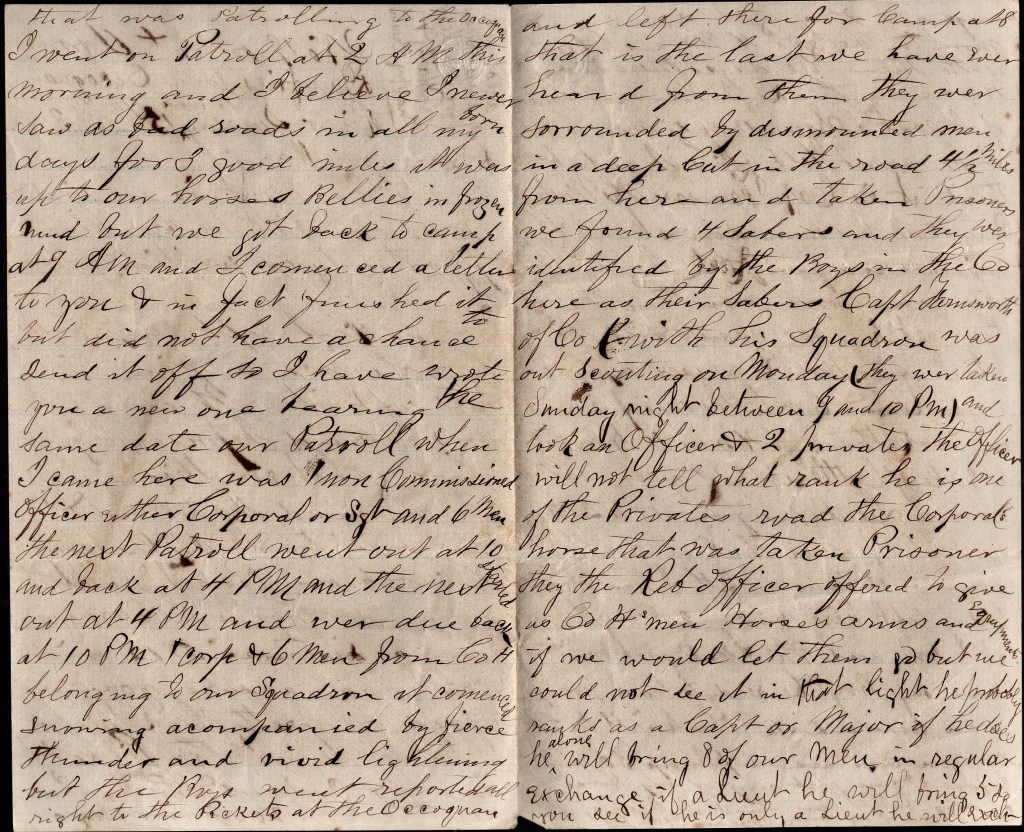 that was Patrolling to the Occoquan
I went on Patroll at 2 AM this
morning and I believe I never
saw as bad roads in all my born
days for 5 good miles it was
up to our horses Bellies in frozen
mud but we got back to camp
at 9 AM and I comenced a letter
to you & in fact finished it
but did not have a chance to
send it off so I have wrote
you a new one bearing the
same date our Patroll when
I came here was 1 non Commissioned
officer either Corporal or Sgt and 6 Men
the next Patroll went out at 10
and back at 4 PM and the next started
out at 4 PM and wer due back
at 10 PM 1 corp & 6 Men from Co H
belonging to our Squadron it comenced
snowing acompanied by fierce
thunder and vivid lightning
but the Boys went reported all
right to the Pickets at the Occoquan
and left there for Camp at 8
that is the last we have ever
heard from them they wer
sorrounded by dismounted men
in a deep Cut in the road 4 1/2 miles
from here and taken Prisoners
we found 4 Sabers and they wer
identified by the Boys in the Co
here as their Sabers Capt Farnsworth
of Co with his Squadron was
out Scouting on Monday (they wer taken
Sunday night between 9 and 10 PM) and
took an Officer & 2 privates the officer
will not tell what rank he is one
of the Privates road the Corporals
horse that was taken Prisoner
they the Reb officer offered to give
us Co H's men Horses arms and Equipments
if we would let them go but we
could not see it in that light he probably
ranks as a Capt or Major if he does
he alone will bring 8 of our Men in regular
exchange if a Lieut he will bring 5 so
you see if he is only a Lieut he will